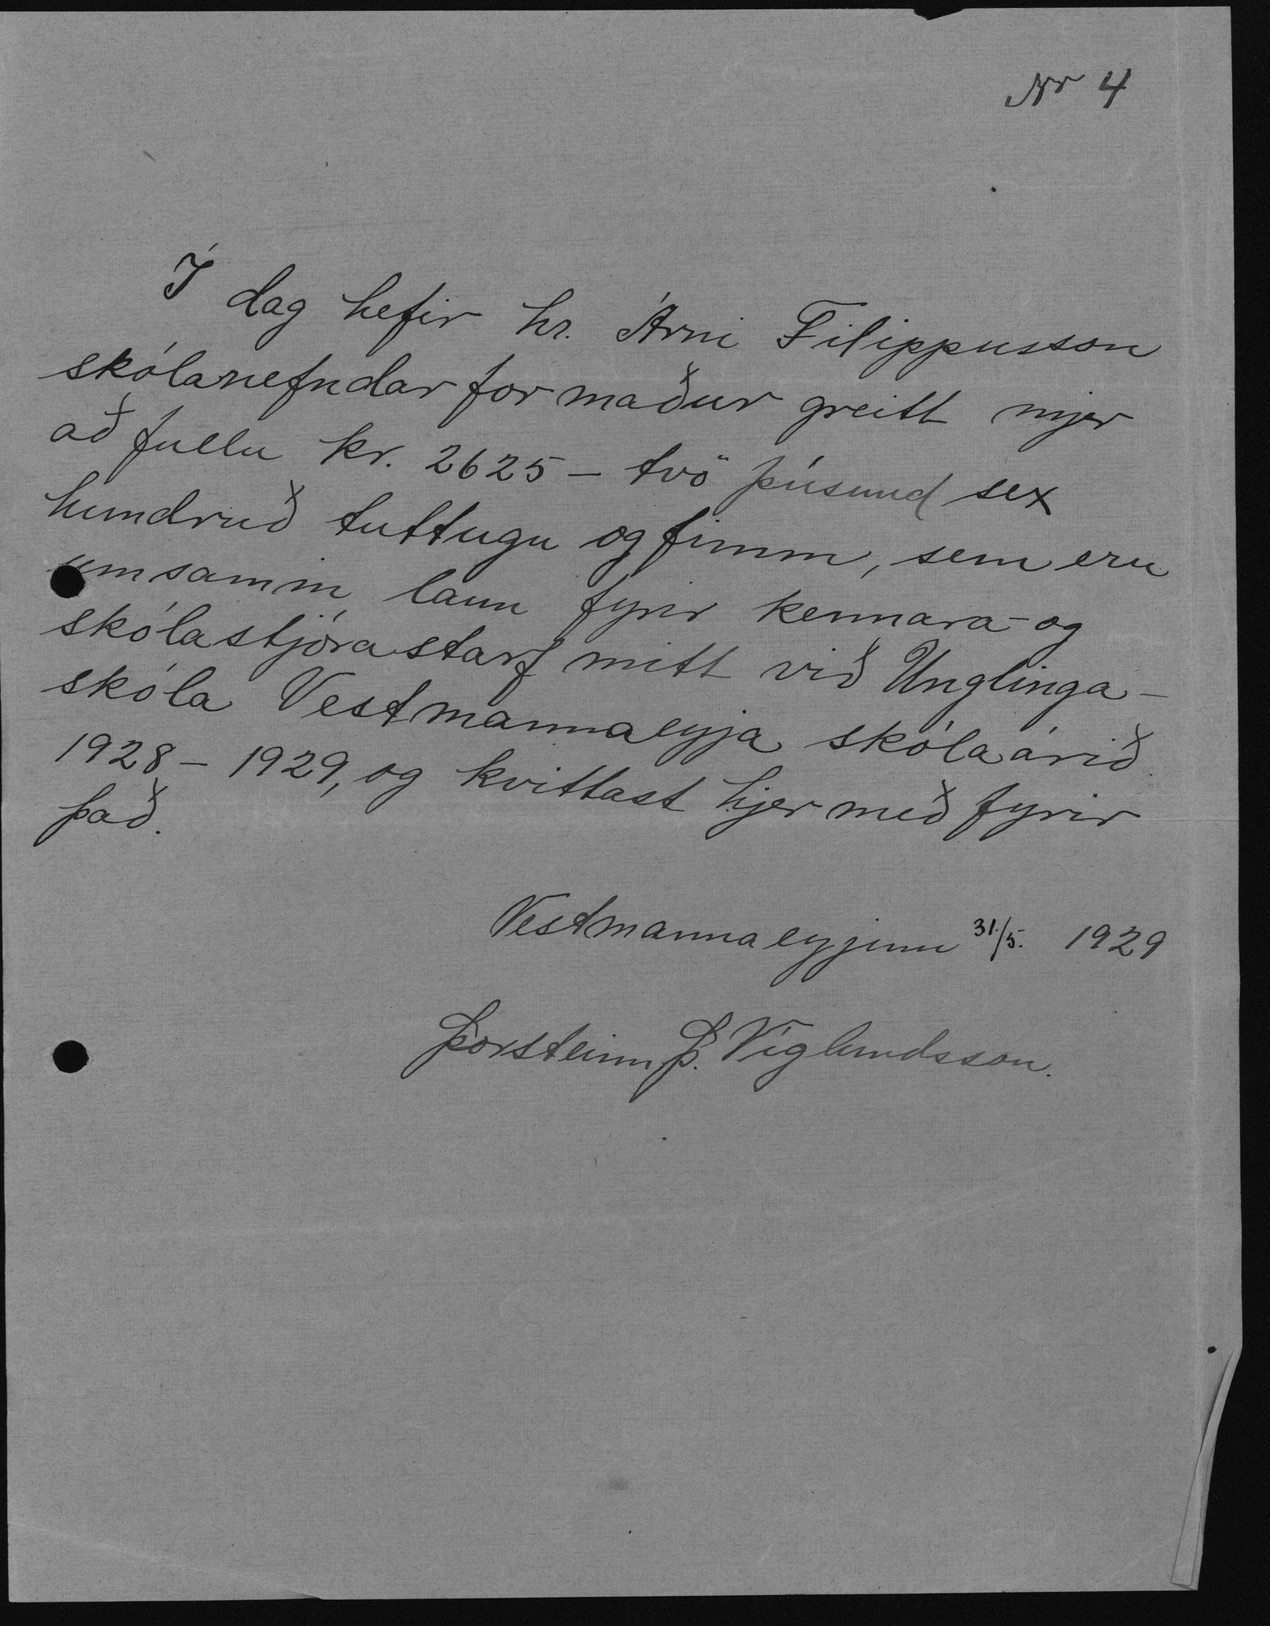 Nr 4
Í dag hefir hr. Árni Filippusson
skólanefndarformaður greitt mjer
að fullu kr. 2625 – tvö þúsund sex
hundruð tuttugu og fimm, sem eru
umsamin laun fyrir kennara- og
skólastjórastarf mitt við Unglinga-
skóla Vestmannaeyja skólaárið
1928 – 1929, og kvittast hjer með fyrir
það.
Vestmannaeyjum 31./5. 1929
Þorsteinn Þ. Víglundsson.